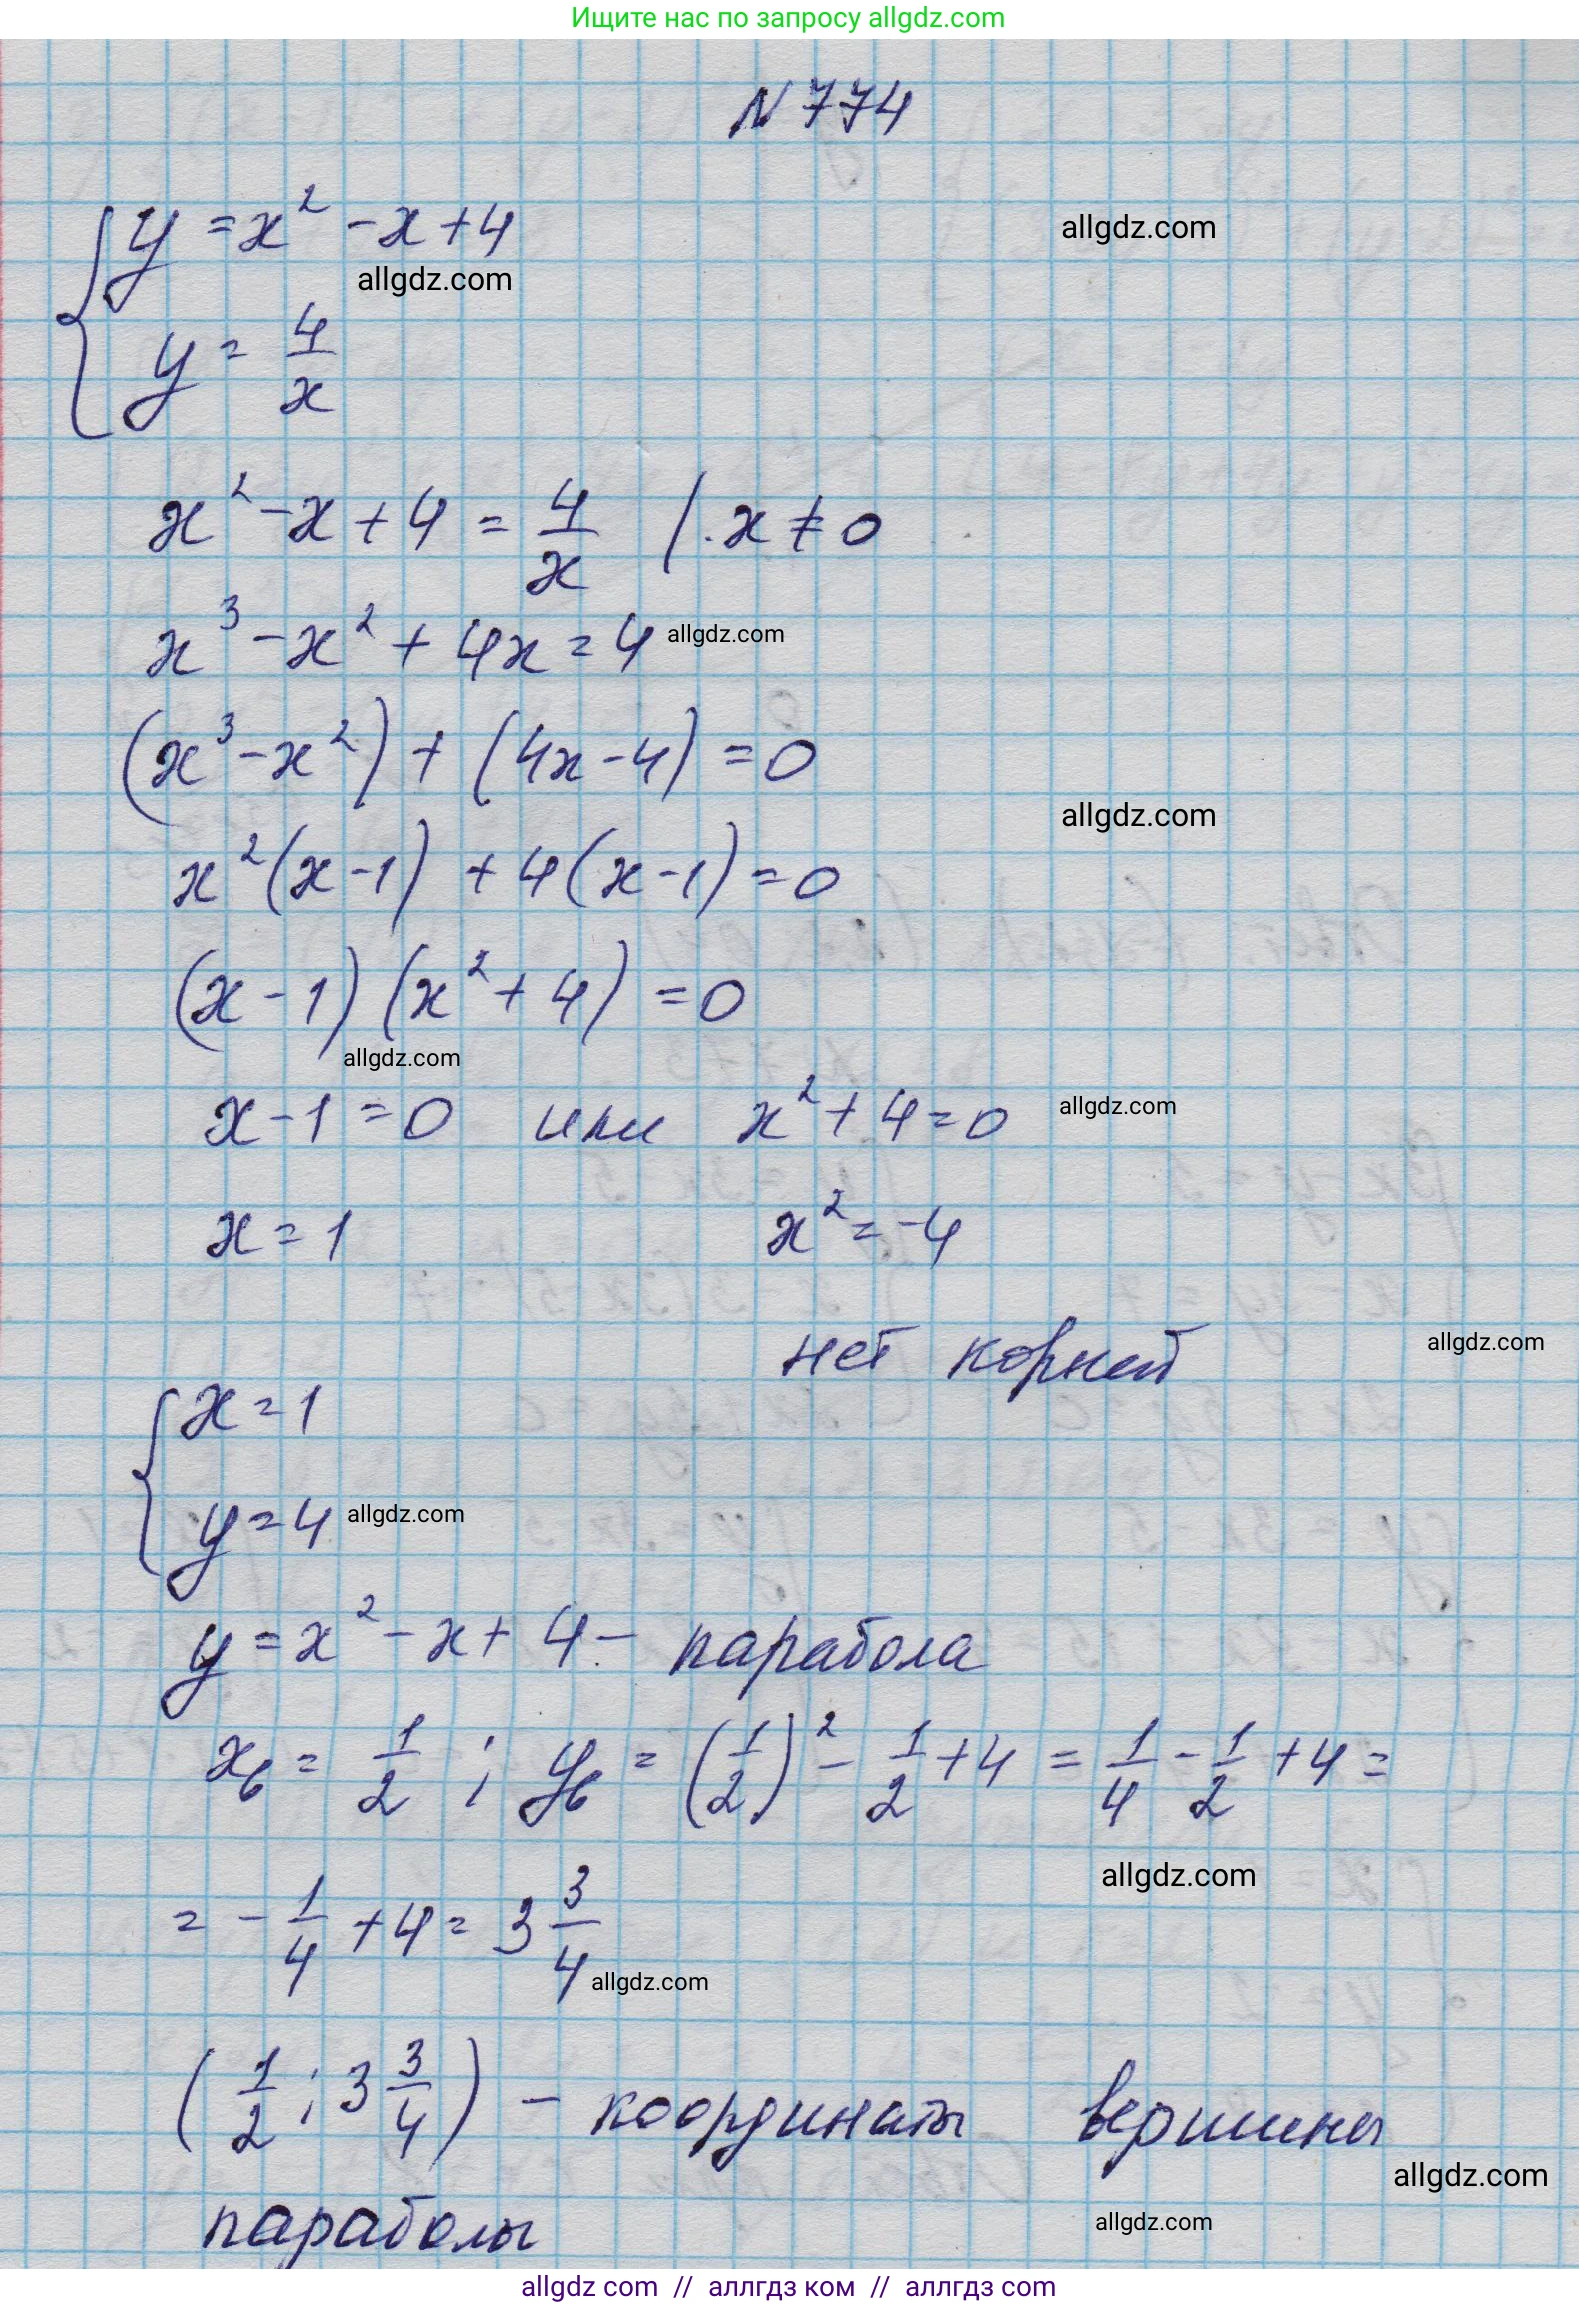 Ищите нас по запросу allgdz.com
N 774
y = x² - x + 4
allgdz.com
allgdz.com
y = 4/x
x² - x + 4 = 4/x | · x ≠ 0
x³ - x² + 4x = 4
allgdz.com
(x³ - x²) + (4x - 4) = 0
allgdz.com
x²(x - 1) + 4(x - 1) = 0
(x - 1)(x² + 4) = 0
allgdz.com
x - 1 = 0 или x² + 4 = 0
allgdz.com
x = 1 x² = -4
нет корней
allgdz.com
x = 1
y = 4
allgdz.com
y = x² - x + 4 - парабола
xв = 1/2 ; yв = (1/2)² - 1/2 + 4 = 1/4 - 1/2 + 4 =
allgdz.com
= - 1/4 + 4 = 3 3/4
allgdz.com
(1/2 ; 3 3/4) - координаты вершины
allgdz.com
параболы
allgdz.com
allgdz com // аллгдз ком // аллгдз com